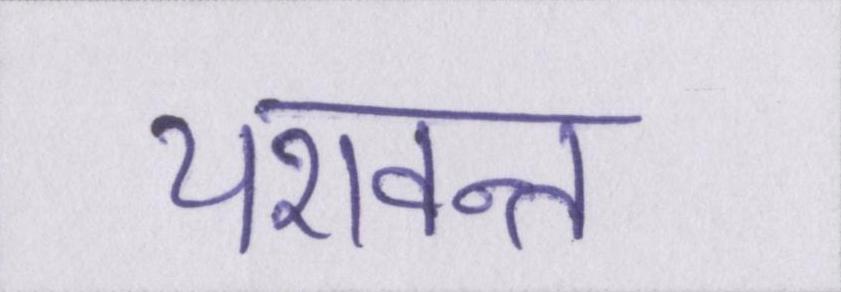 यशवन्त